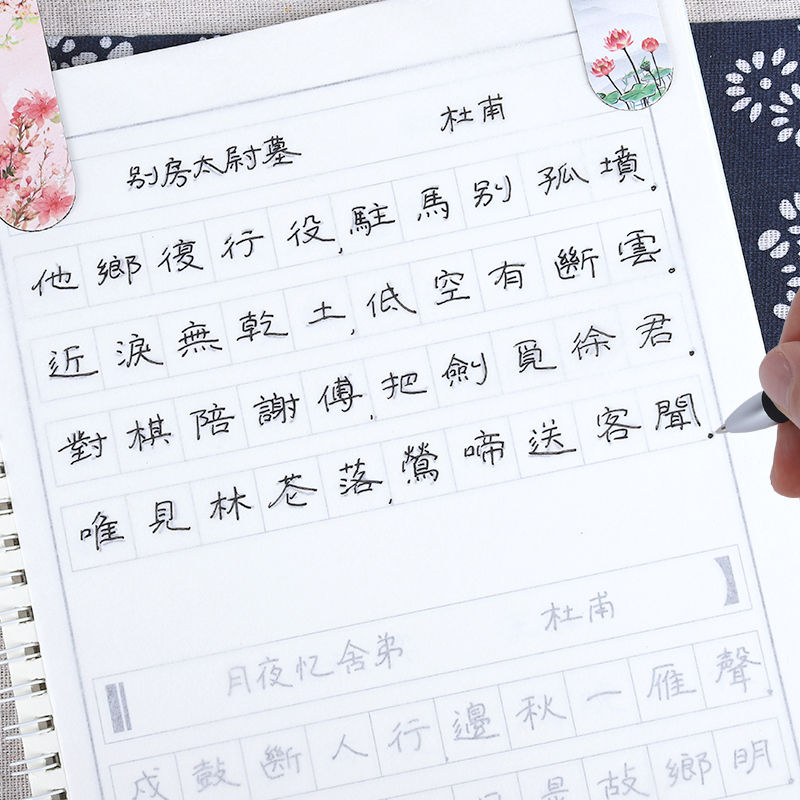 别房太尉墓 杜甫
他鄉復行役,駐馬别孤墳。
近淚無乾土,低空有斷雲。
對棋陪謝傅,把劍覓徐君。
唯見林花落,鶯啼送客聞。
月夜忆舍弟 杜甫
戍鼓斷人行,邊秋一雁聲。
故鄉明